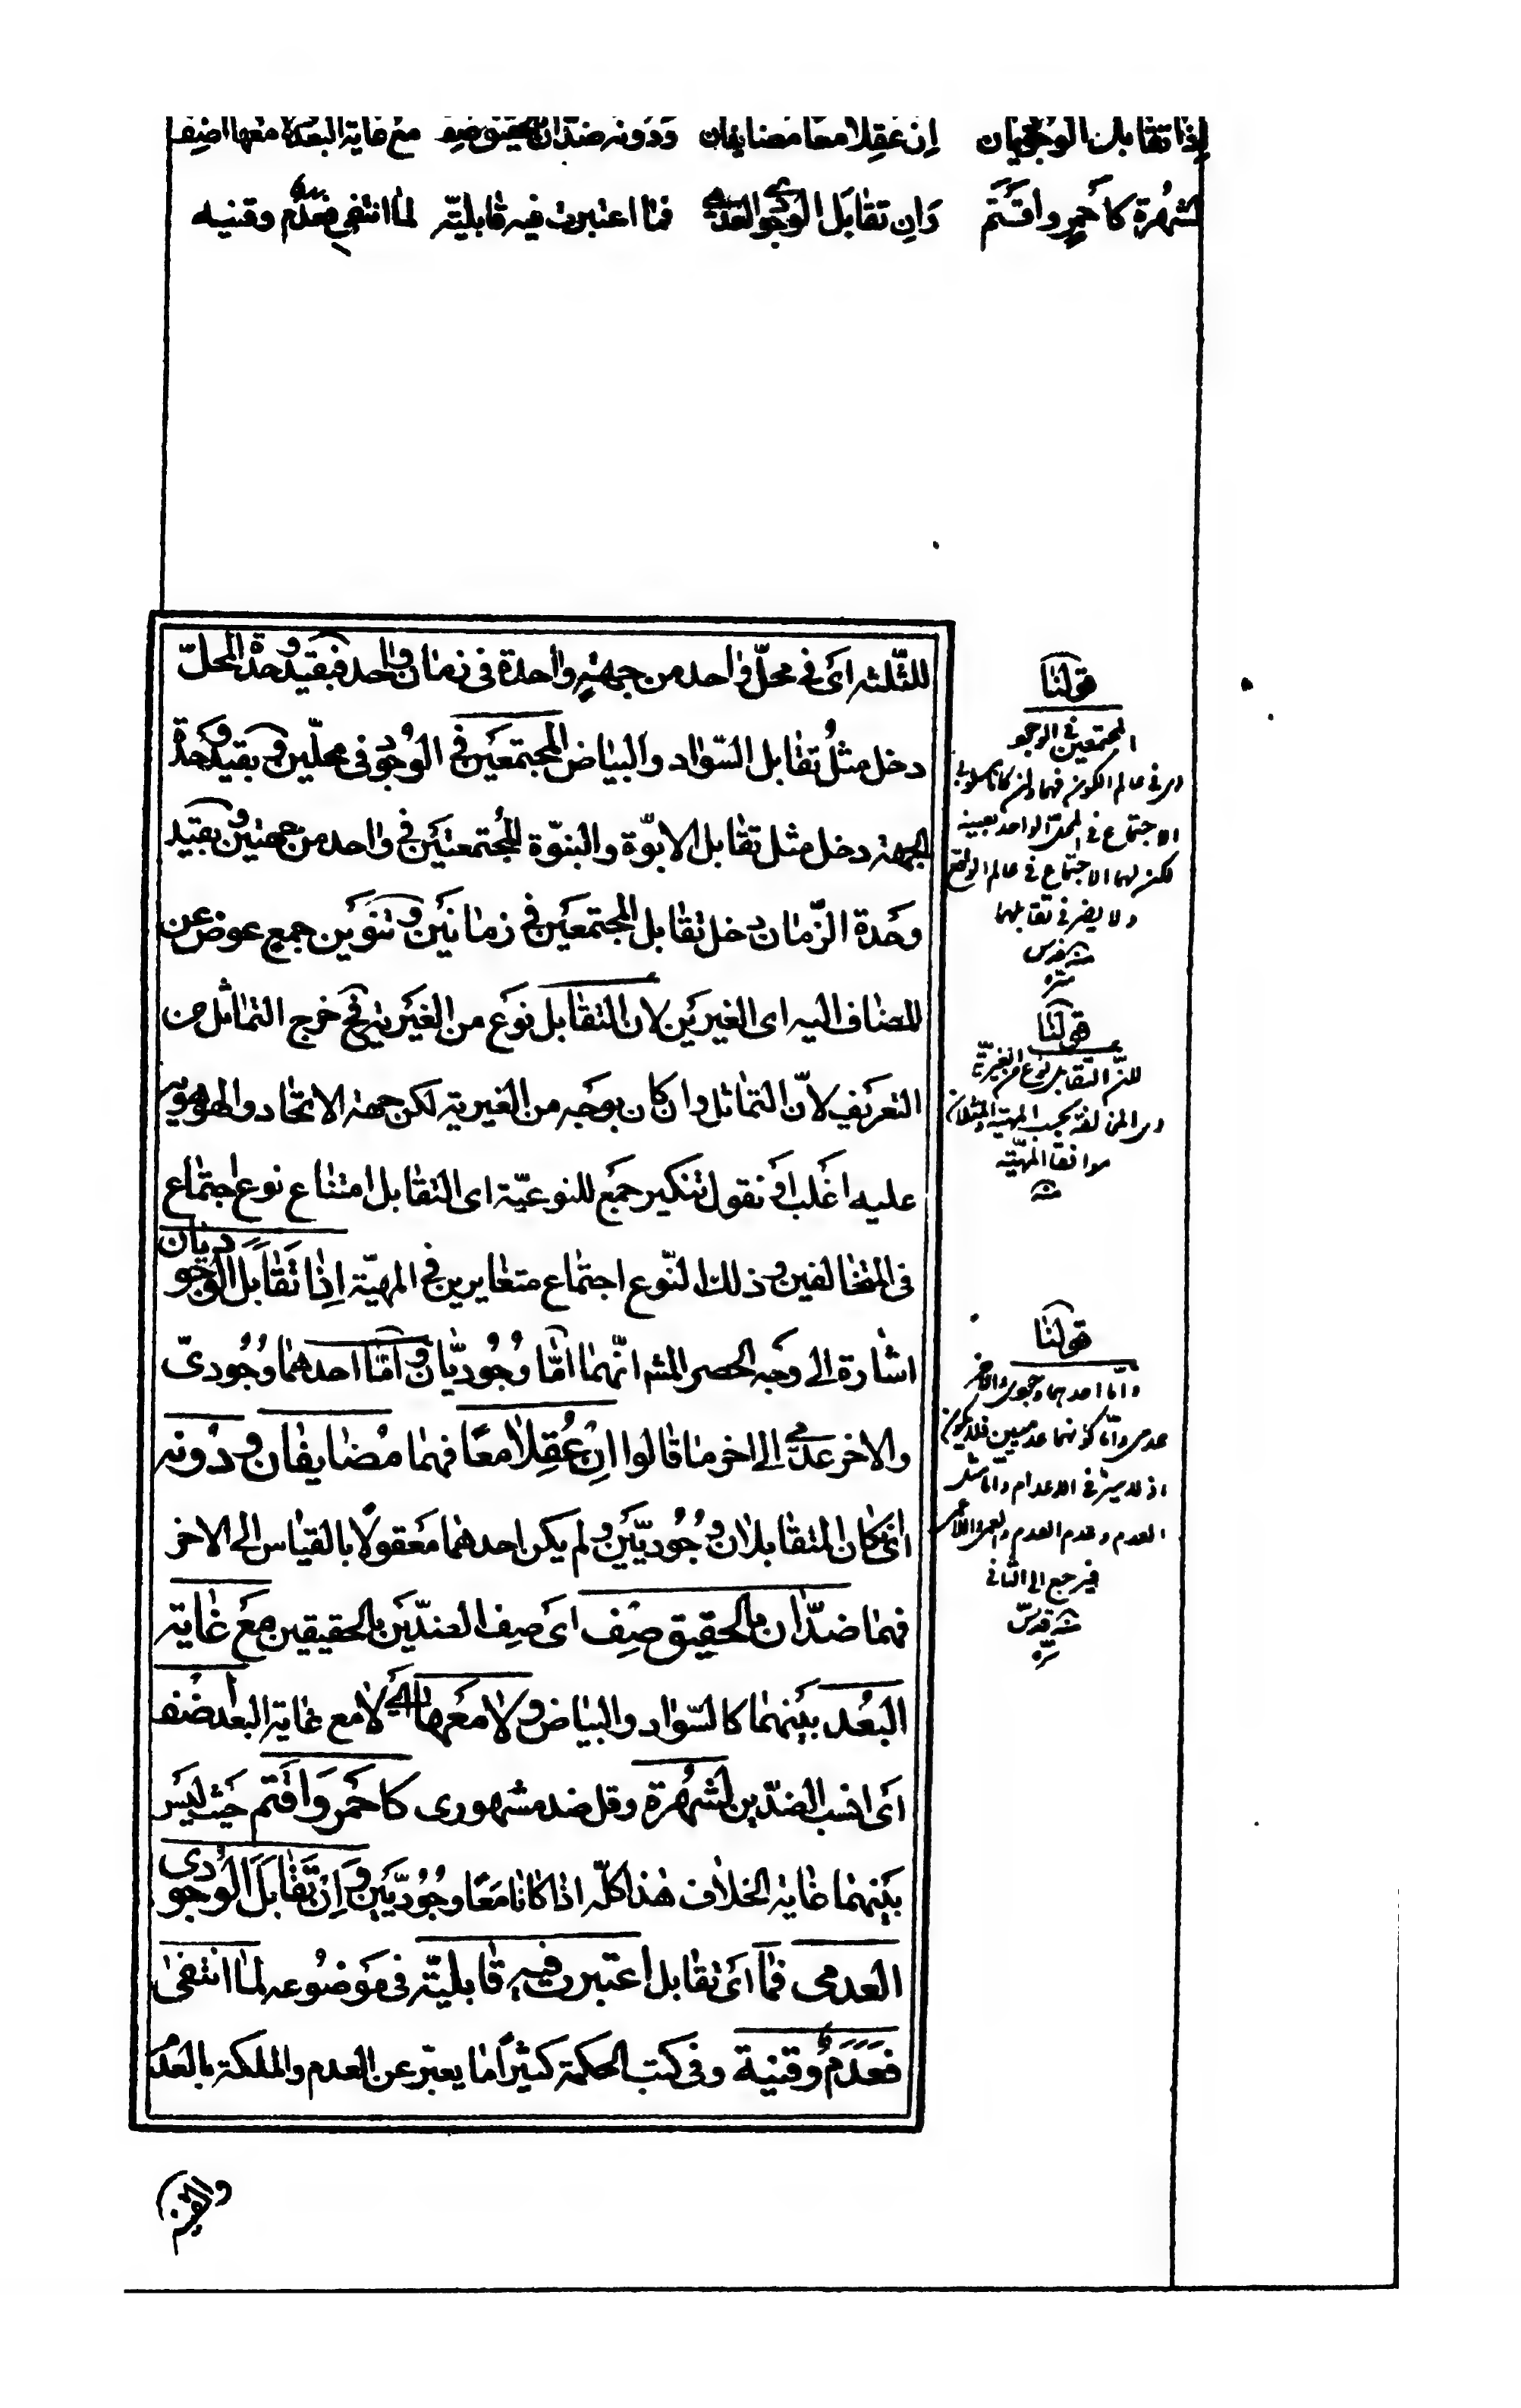 إذا تقابل الوجوديان إن عقلا معا مضايفان ودونه ضدان بالحقيق صف مع غاية البعد ولا معها اضف
لشهرة كأحمر واقتم وإن تقابل الوجودي العدمي فما اعتبرت فيه قابلية لما انتفى فعدم وقنيه
للثّلثه اى فى محلّ واحد من جهةٍ واحدة فى زمان واحد فبقيد وحدة المحلّ
دخل مثل تقابل السّواد والبياض المجتمعين فى الوجود فى محلّين و بقيد وحدة
الجهة دخل مثل تقابل الابوّة والبنوّة المجتمعتين فى واحد من جهتين و بقيد
وحدة الزّمان دخل تقابل المجتمعين فى زمانين و تنوين جمع عوض عن
المضاف اليه اى الغيرين لان التقابل نوع من الغيرية فخرج التماثل من
التعريف لانّ التماثل وان كان بوجه من الغيرية لكن جهة الاتحاد والهوهوية
عليه اغلب او نقول تنكير جمع للنوعيّة اى التقابل امتناع نوع اجتماع
فى المتخالفين و ذلك النّوع اجتماع متغايرين فى المهيّة إذا تقابل الوجوديان
اشارة الى وجه الحصر المشهور انّهما امّا وجوديّان و امّا احدهما وجودىّ
والاخر عدمى الى اخر ما قالوا ان عقلا معًا فهما مضايفان و دونه
اى كان المتقابلان وجوديّين و لم يكن احدهما معقولًا بالقياس الى الاخر
فهما ضدّان بالحقيق صف اى صف الضدّين بالحقيقين مع غاية
البعد بينهما كالسّواد والبياض و لا معها اى لا مع غاية البعد اضف
اى انسب الضدّين لشهرة وقل ضد مشهورى كأحمر واقتم حيث ليس
بينهما غاية الخلاف هذا كلّه اذا كانا معًا وجوديّين و ان تقابل الوجودى
العدمى فما اى تقابل اعتبرت فيه قابليّة فى موضوعه لما انتفى
فعدم وقنية وفى كتب الحكمة كثيرًا ما يعبّر عن العدم والملكة بالعدم
والقنية
قولنا
المجتمعين فى الوجود
اى فى عالم الكون فهما وان كانا
الاجتماع فى المحل الواحد بعينه
لكن لهما الاجتماع فى عالم الواقع
ولا يضر فى تقابلهما
منه قدس
سره
قولنا
لان التقابل نوع من الغيريّة
اى المخالفة بحسب المهية والمثلان
موافقا المهيّة
منه
قولنا
وامّا احدهما وجودى والاخر
عدمى وامّا كونهما عدميين فلا يكون
اذ لا ميز فى الاعدام واما مثل
العدم وعدم العدم والعمى واللاعمى
فيرجع الى الثانى
منه قدس
سره